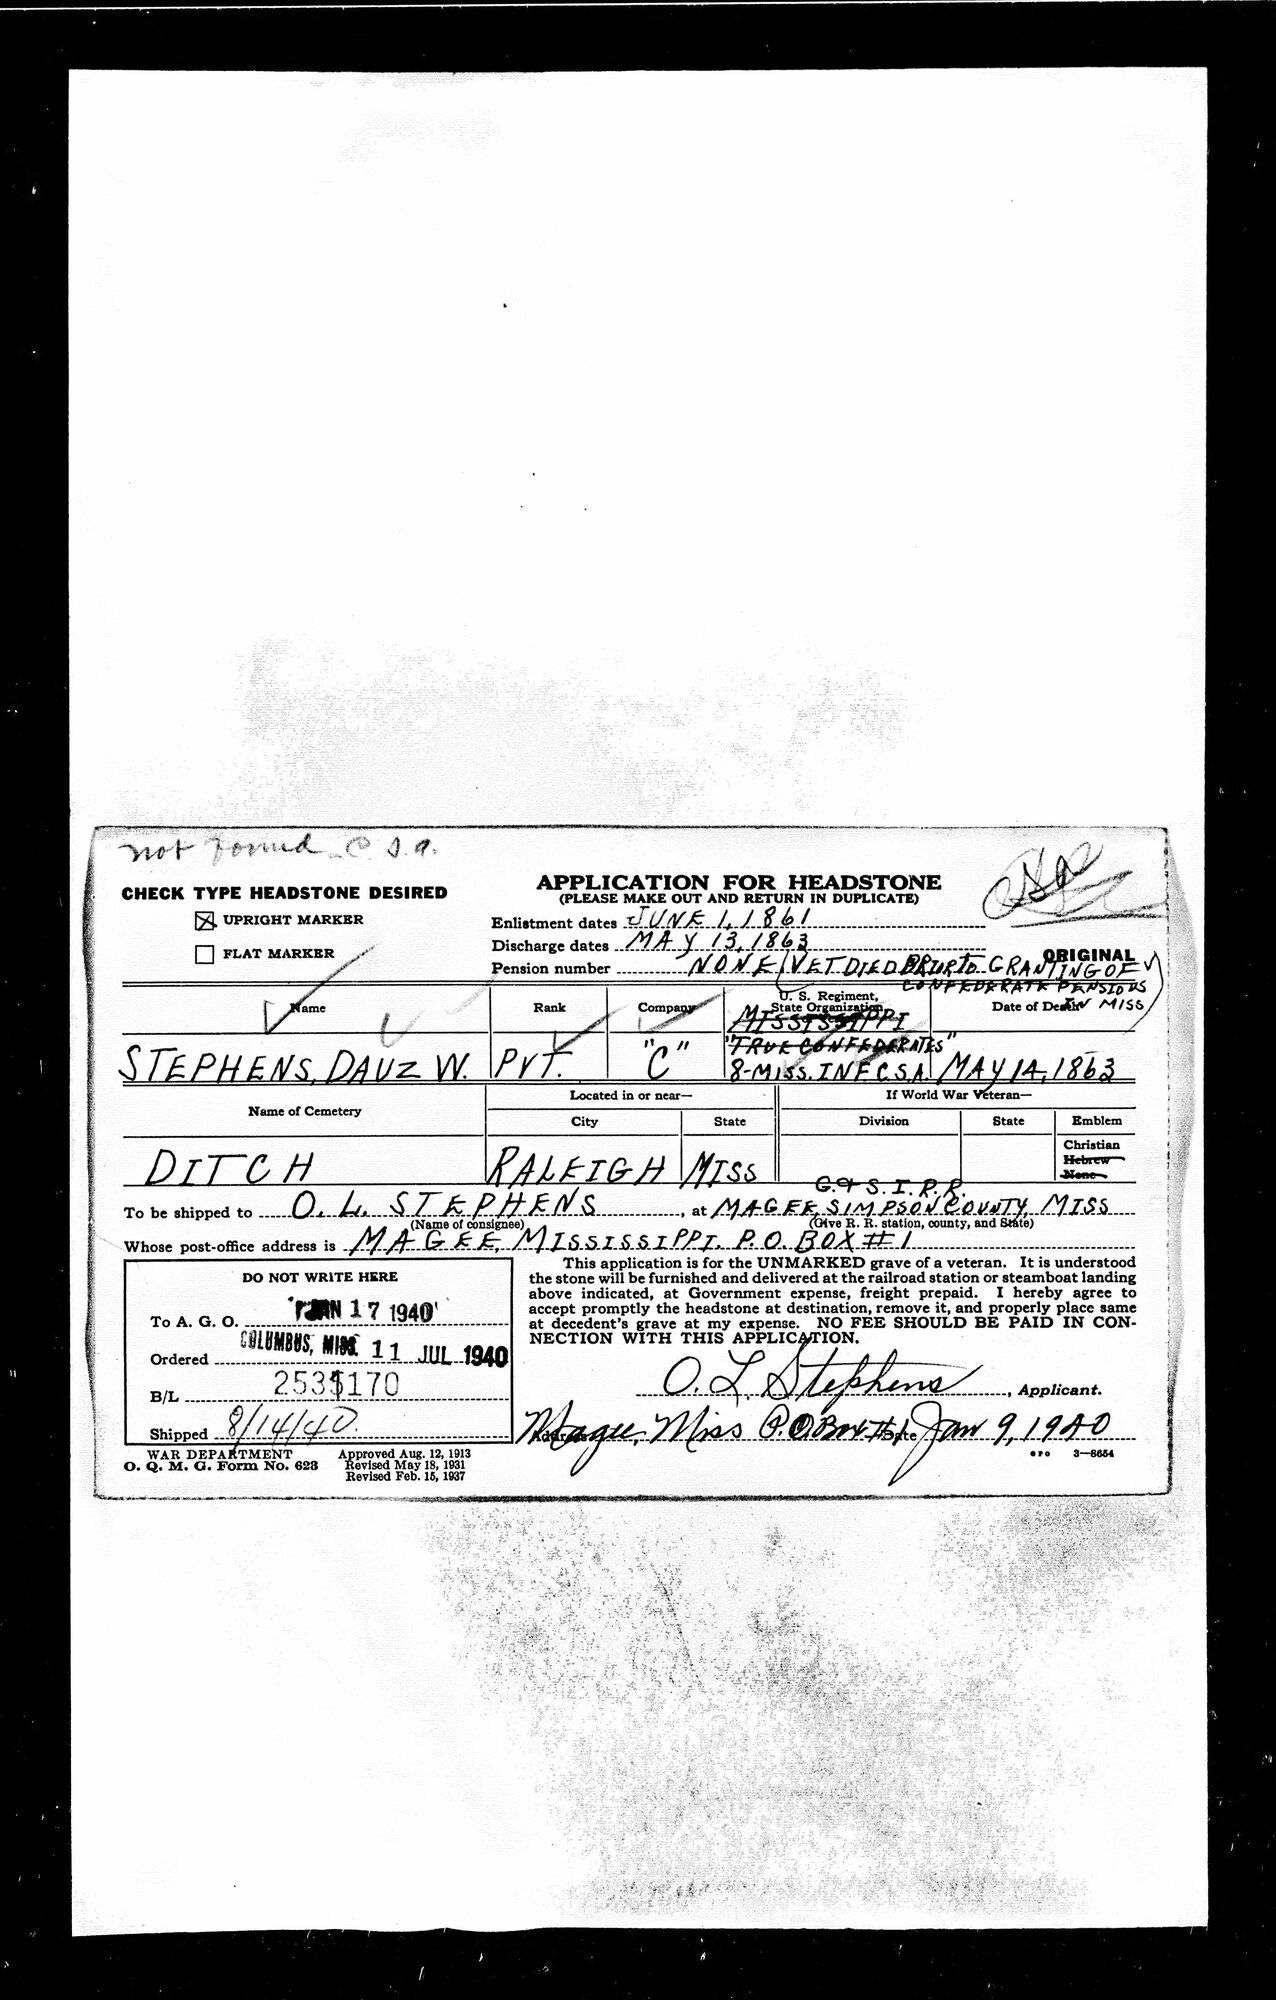 not found C.S.A.
CHECK TYPE HEADSTONE DESIRED
UPRIGHT MARKER
FLAT MARKER
APPLICATION FOR HEADSTONE
(PLEASE MAKE OUT AND RETURN IN DUPLICATE)
Enlistment dates JUNE 1, 1861
Discharge dates MAY 13, 1863
ORIGINAL
Pension number NONE (VET DIED PRIOR TO GRANTING OF
CONFEDERATE PENSIONS
IN MISS)
Name
Rank
Company
U. S. Regiment,
State Organization,
Date of Death
MISSISSIPPI
"TRUE CONFEDERATES"
STEPHENS, DAUZ W. PVT. "C" 8-MISS. INF. C.S.A. MAY 14, 1863
Name of Cemetery
Located in or near—
If World War Veteran—
City State Division State Emblem
Christian
Hebrew
None
DITCH RALEIGH MISS
G. & S. I. R. R.
To be shipped to O. L. STEPHENS, at MAGEE, SIMPSON COUNTY, MISS
(Name of consignee) (Give R. R. station, county, and State)
Whose post-office address is MAGEE, MISSISSIPPI. P.O. BOX #1
DO NOT WRITE HERE
To A. G. O. JAN 17 1940
Ordered COLUMBUS, MISS. 11 JUL 1940
B/L 2531170
Shipped 8/14/40.
This application is for the UNMARKED grave of a veteran. It is understood
the stone will be furnished and delivered at the railroad station or steamboat landing
above indicated, at Government expense, freight prepaid. I hereby agree to
accept promptly the headstone at destination, remove it, and properly place same
at decedent's grave at my expense. NO FEE SHOULD BE PAID IN CON-
NECTION WITH THIS APPLICATION.
O. L. Stephens, Applicant.
Address Magee, Miss P.O. Box #1 Date Jan 9, 1940
WAR DEPARTMENT
O. Q. M. G. Form No. 623
Approved Aug. 12, 1913
Revised May 18, 1931
Revised Feb. 15, 1937
GPO 3—8654